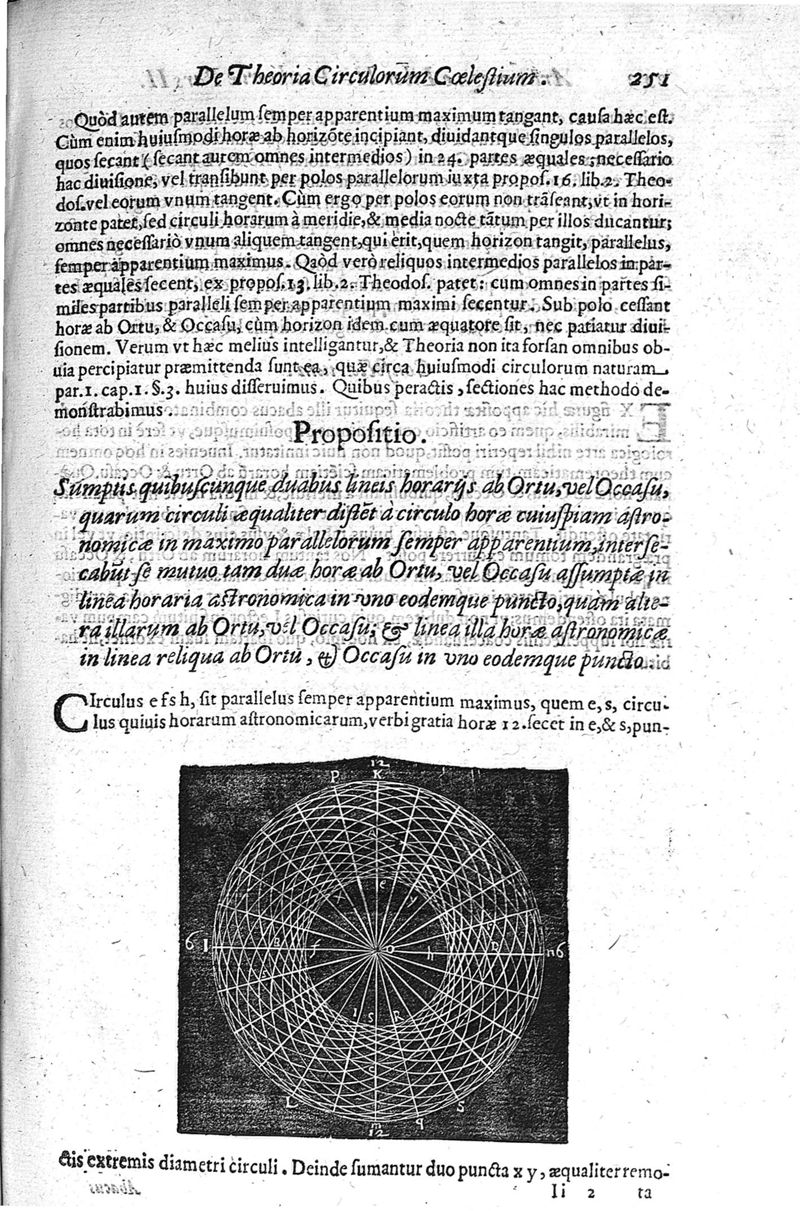 De Theoria Circulorum Cœlestium. 251
Quòd autem parallelum semper apparentium maximum tangant, causa hæc est.
Cùm enim huiusmodi horæ ab horizōte incipiant, diuidantque singulos parallelos,
quos secant (secant autem omnes intermedios) in 24. partes æquales; necessario
hac diuisione, vel transibunt per polos parallelorum iuxta propos. 16. lib. 2. Theo-
dos. vel eorum vnum tangent. Cùm ergo per polos eorum non trāseant, vt in hori-
zonte patet, sed circuli horarum à meridie, & media nocte tātum per illos ducantur;
omnes necessariò vnum aliquem tangent, qui erit, quem horizon tangit, parallelus,
semper apparentium maximus. Quòd verò reliquos intermedios parallelos in par-
tes æquales secent, ex propos. 13. lib. 2. Theodos. patet: cum omnes in partes si-
miles partibus paralleli semper apparentium maximi secentur. Sub polo cessant
horæ ab Ortu, & Occasu, cùm horizon idem cum æquatore sit, nec patiatur diui-
sionem. Verum vt hæc melius intelligantur, & Theoria non ita forsan omnibus ob-
uia percipiatur præmittenda sunt ea, quæ circa huiusmodi circulorum naturam
par. 1. cap. 1. §. 3. huius disseruimus. Quibus peractis, sectiones hac methodo de-
monstrabimus
Propositio.
Sumptis quibuscunque duabus lineis horarijs ab Ortu, vel Occasu,
quarum circuli æqualiter distēt à circulo horæ cuiuspiam astro-
nomicæ in maximo parallelorum semper apparentium, interse-
cabūt se mutuo tam duæ horæ ab Ortu, vel Occasu assumptæ in
linea horaria astronomica in vno eodemque puncto, quàm alte-
ra illarum ab Ortu, vel Occasu; & linea illa horæ astronomicæ
in linea reliqua ab Ortu, & Occasu in vno eodemque puncto.
CIrculus e f s h, sit parallelus semper apparentium maximus, quem e, s, circu-
lus quiuis horarum astronomicarum, verbi gratia horæ 12. secet in e, & s, pun-
12
P K
A
e
x y
6 I B f o h D n 6
i S R
c
L S
m q
12
ctis extremis diametri circuli. Deinde sumantur duo puncta x y, æqualiter remo-
Ii 2 ta